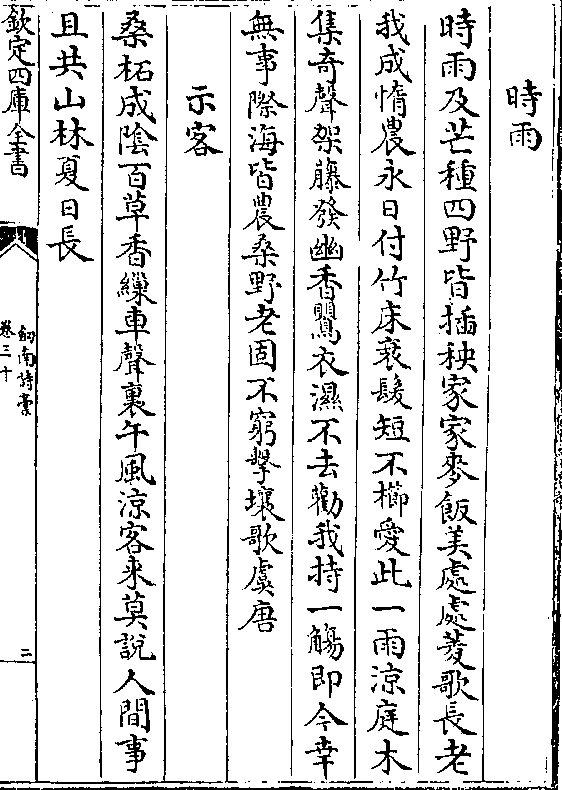 時雨
時雨及芒種四野皆插秧家家麥飯美處處菱歌長老
我成惰農永日付竹床衰髮短不櫛愛此一雨涼庭木
集奇聲架藤發幽香鸎衣濕不去勸我持一觴即今幸
無事際海皆農桑野老固不窮擊壤歌虞唐
示客
桑柘成陰百草香繅車聲裏午風涼客来莫說人間事
且共山林夏日長
欽定四庫全書
劒南詩稾
卷三十
二